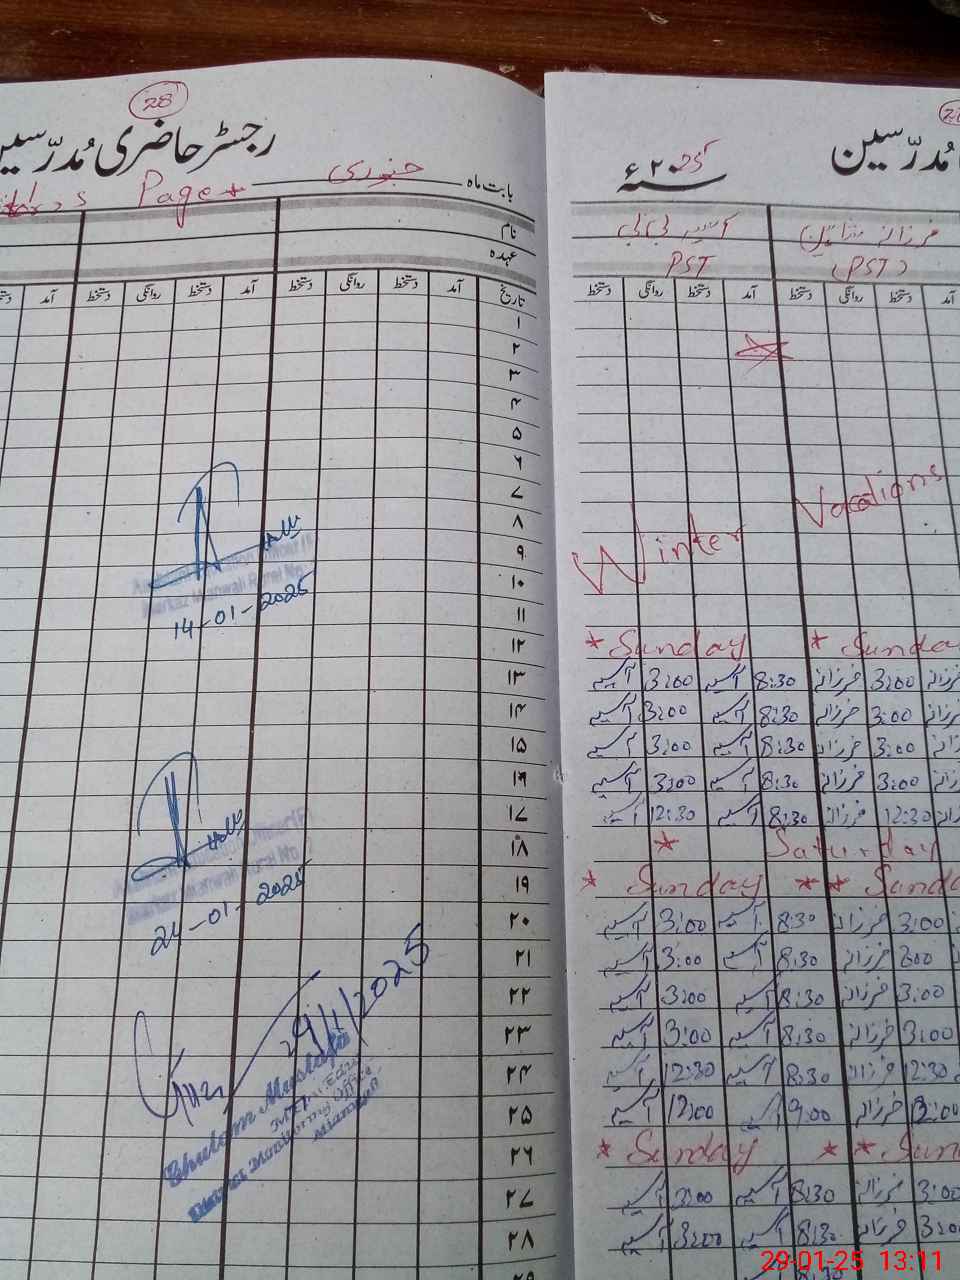 28
رجسٹر حاضری مُدرّسین
Page *
بابت ماہ جنوری
نام
عہدہ
تاریخ آمد دستخط روانگی دستخط آمد دستخط روانگی دستخط آمد
۱
۲
۳
۴
۵
۶
۷
۸
۹
۱۰
۱۱
۱۲
۱۳
۱۴
۱۵
۱۶
۱۷
۱۸
۱۹
۲۰
۲۱
۲۲
۲۳
۲۴
۲۵
۲۶
۲۷
۲۸
۲۹
14-01-2025
21-01-2025
29/1/2025
Ghulam Mustafa
District Monitoring Officer
Mianwali
مُدرّسین
سنہ ۲۰25ء
فرزانہ آسیہ بی بی
(PST) PST
آمد دستخط روانگی دستخط آمد دستخط روانگی دستخط
Winter Vacations
* Sunday * Sunday
آسیہ 3:00 آسیہ 8:30 فرزانہ 3:00 فرزانہ
آسیہ 3:00 آسیہ 8:30 فرزانہ 3:00 فرزانہ
آسیہ 3:00 آسیہ 8:30 فرزانہ 3:00 فرزانہ
آسیہ 3:00 آسیہ 8:30 فرزانہ 3:00 فرزانہ
آسیہ 12:30 آسیہ 8:30 فرزانہ 12:30 فرزانہ
* Saturday
* Sunday * * Sunda
آسیہ 3:00 آسیہ 8:30 فرزانہ 3:00
آسیہ 3:00 آسیہ 8:30 فرزانہ 300
آسیہ 3:00 آسیہ 8:30 فرزانہ 3:00
آسیہ 3:00 آسیہ 8:30 فرزانہ 3:00
آسیہ 12:30 آسیہ 8:30 فرزانہ 12:30
آسیہ 12:00 آسیہ 9:00 فرزانہ 12:00
* Sunday * * Sun
آسیہ 3:00 آسیہ 8:30 فرزانہ 3:00
آسیہ 3:00 آسیہ 8:30 فرزانہ 3:00
8:30
29-01-25 13:11